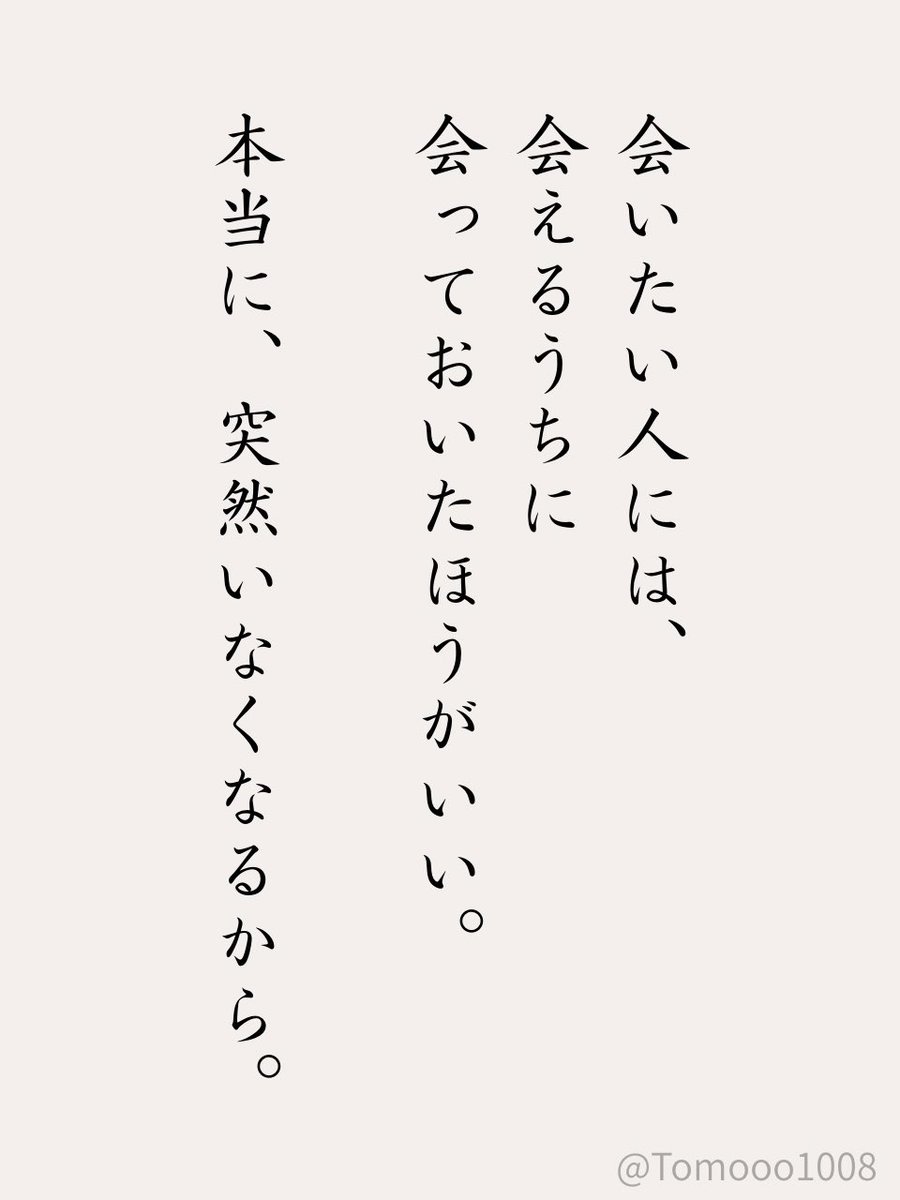 会いたい人には、
会えるうちに
会っておいたほうがいい。
本当に、突然いなくなるから。
@Tomooo1008